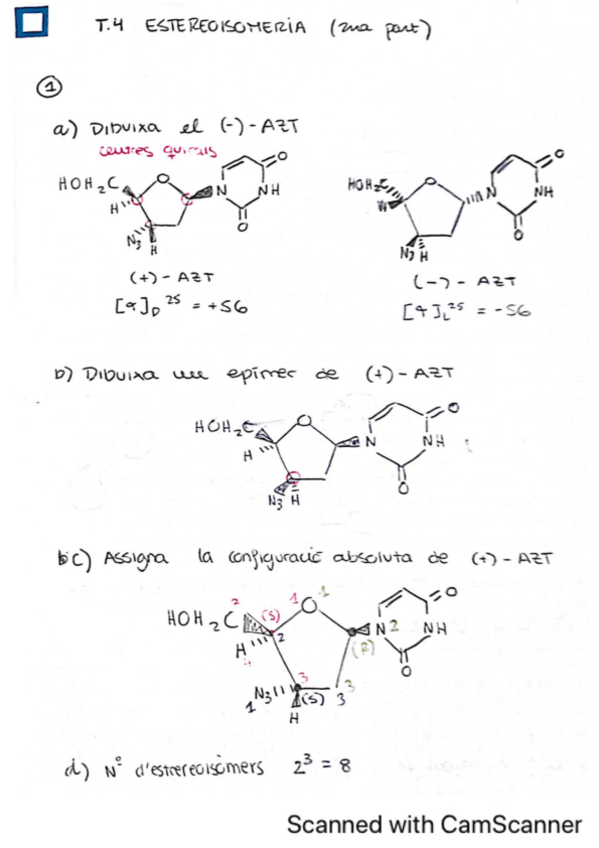 T.4 ESTEREOISOMERIA (2na part)
1
a) Dibuixa el (-)-AZT
centres quirals
HOH2C O N NH O O H N3 H
HOH2C O N NH O O H N3 H
(+)-AZT
(-)-AZT
[α]D 25 = +56
[α]L 25 = -56
b) Dibuixa un epímer de (+)-AZT
HOH2C O N NH O O H N3 H
c) Assigna la configuració absoluta de (+)-AZT
HOH2C 2 (S) 1 O 1 N 2 NH O O
H 4 2 (R)
1 N3 3 (S) 3 3
H
d) Nº d'estereoisòmers 2^3 = 8
Scanned with CamScanner